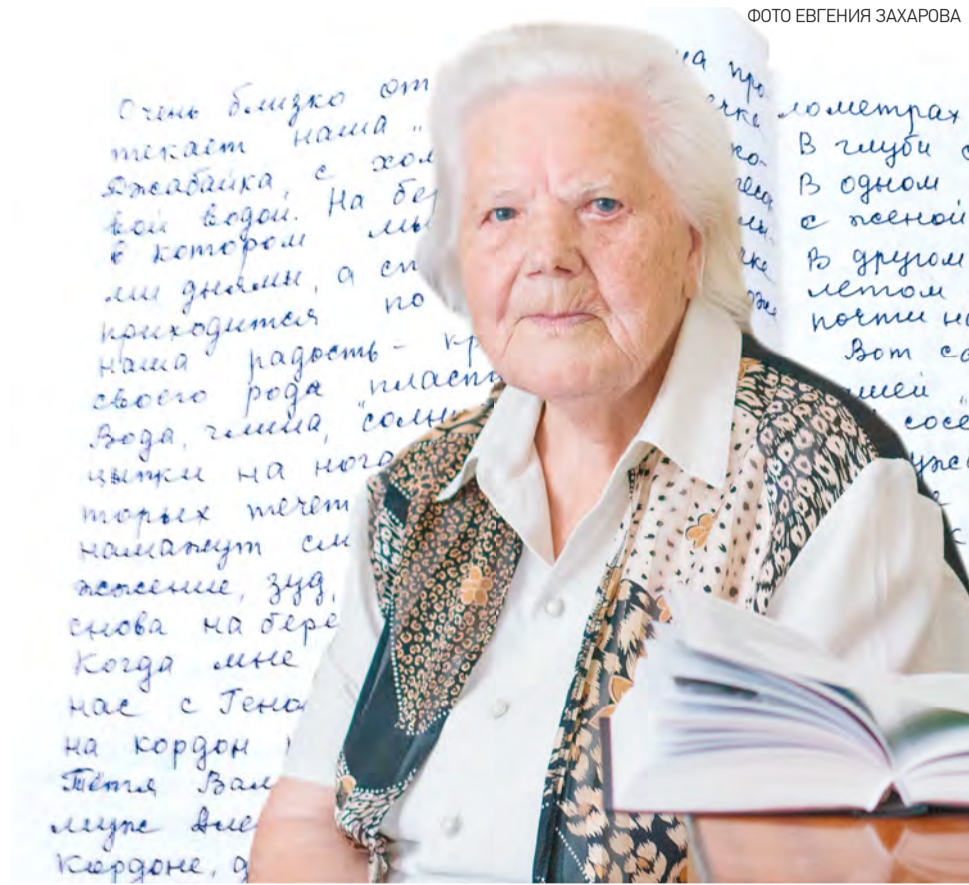 ФОТО ЕВГЕНИЯ ЗАХАРОВА
Очень близко от
текает наша "
Джабайка, с хол
вой водой. На бе
в котором мы
ли днями, а сп
приходится по
наша радость – кр
своего рода "пласт
Вода, глина, солн
цыпки на нога
торых течет
намажут см
жжение, зуд,
снова на бере
Когда мне
нас с Гено
на кордон
Тётя Вал
муж Але
Кордоне, д
на про
ечке
ко-
леса
лометрах
В глуби с
В одном
с женой
В другом
летом
почти на
Вот со
шей "
сосе